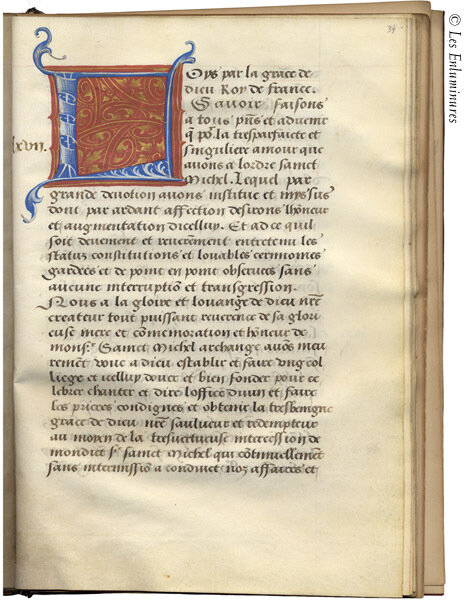 39
Loys par la grace de
dieu Roy de france.
Sauoir faisons
a tous pñs et aduenir
q̃ po.r la tresparfaicte et
lxvii. singuliere amour que
auons a lordre sainct
Michel. Lequel par
grande deuotion auons institue et mys sus
dont par ardant affection desirons lhõneur
et augmentation dicelluy. Et ad ce quil
soit deuement et reueremẽt entretenu les
statuz constitutions et louables cerimoines
gardees et de point en point obserues sans
aucune interruptiõ et transgression.
Nous a la gloire et louange de dieu nr̃e
createur tout puissant reuerence de sa glori
euse mere et cõmemoration et hõneur de
mons.r Sainct Michel archange auõs meu
rement voue a dieu establir et faire vng col
liege et icelluy douer et bien fonder pour ce
lebrer chanter et dire loffice diuin et faire
les prieres condignes et obtenir la tresbenigne
grace de dieu nr̃e saulueur et redempteur
au moyen de la tresuertueuse intercession de
mondict s.r sainct Michel qui cõtinuellemẽt
sans intermissiõ a conduict noz affaires et
© Les Enluminures